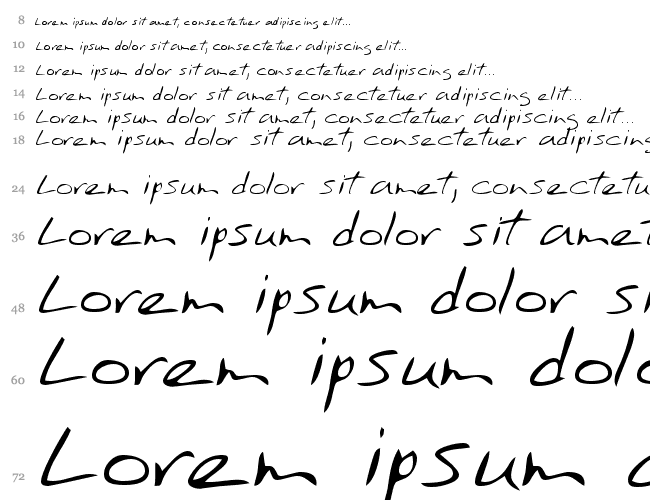 8 Lorem ipsum dolor sit amet, consectetuer adipiscing elit...
10 Lorem ipsum dolor sit amet, consectetuer adipiscing elit...
12 Lorem ipsum dolor sit amet, consectetuer adipiscing elit...
14 Lorem ipsum dolor sit amet, consectetuer adipiscing elit...
16 Lorem ipsum dolor sit amet, consectetuer adipiscing elit...
18 Lorem ipsum dolor sit amet, consectetuer adipiscing
24 Lorem ipsum dolor sit amet, consectetu
36 Lorem ipsum dolor sit amet
48 Lorem ipsum dolor si
60 Lorem ipsum dolo
72 Lorem ipsum d